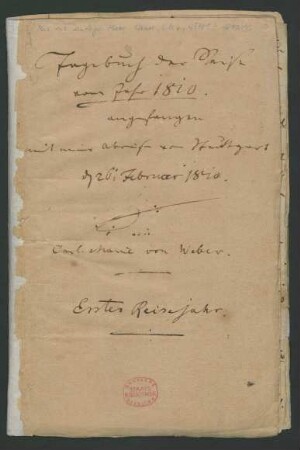 Tagebuch der Reise
vom Jahr 1810.
angefangen
mit meiner abreise von Stuttgart
d: 26t Februar 1810.
Carl Marie von Weber.
Erstes Reisejahr.